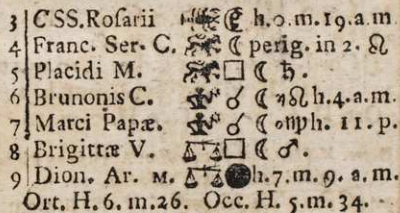 3 CSS.Roſarii ♌ ☾ h.0.m.19.a.m
4 Franc. Ser. C. ♌ ☾ perig. in 2. ☊
5 Placidi M. □ ☾ ♄.
6 Brunonis C. ☌ ☾ ☊ h.4.a.m.
7 Marci Papæ. ☌ ☾ h. 11. p.
8 Brigittæ V. ♎ □ ☾ ♂.
9 Dion. Ar. M. ♎ ● h.7.m.9.a.m.
Ort. H. 6. m.26. Occ. H. 5. m. 34.